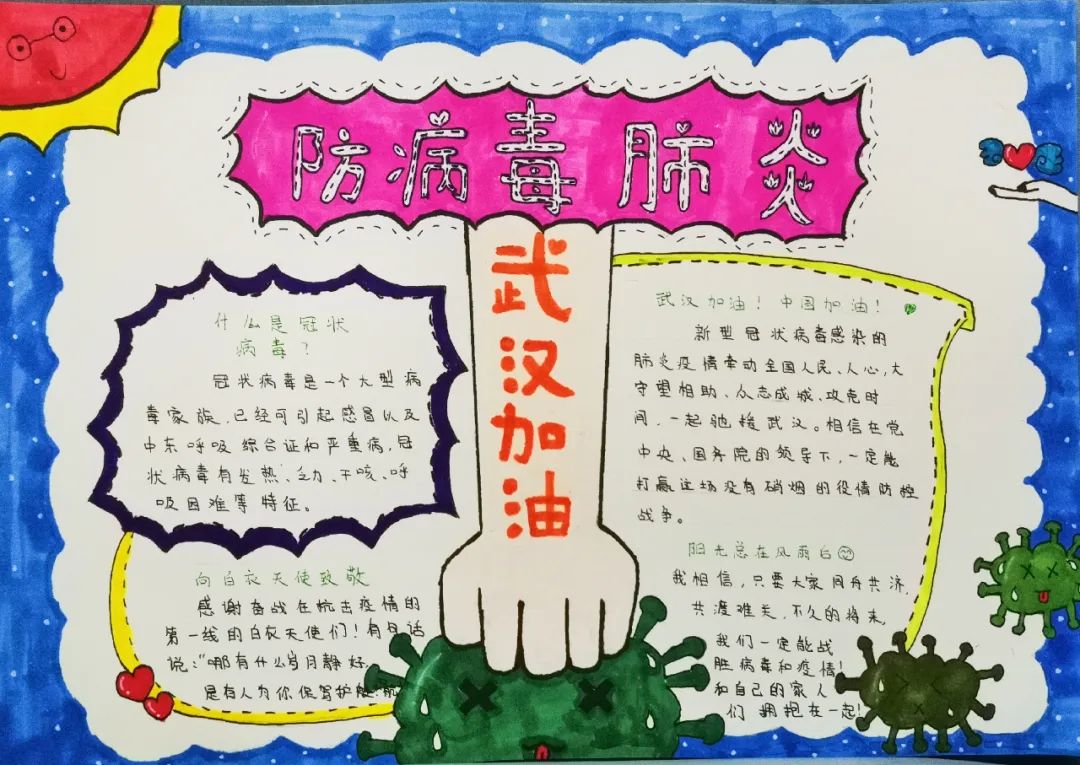 防病毒肺炎
武汉加油
什么是冠状
病毒？
冠状病毒是一个大型病
毒家族,已经可引起感冒以及
中东呼吸综合证和严重病,冠
状病毒有发热、乏力、干咳、呼
吸困难等特征。
向白衣天使致敬
感谢奋战在抗击疫情的
第一线的白衣天使们！有句话
说:“哪有什么岁月静好,
是有人为你保驾护航
武汉加油！中国加油！
新型冠状病毒感染的
肺炎疫情牵动全国人民、人心,大
守望相助、众志成城、攻克时
间,一起驰援武汉。相信在党
中央、国务院的领导下,一定能
打赢这场没有硝烟的役情防控
战争。
阳光总在风雨后
我相信,只要大家同舟共济,
共渡难关,不久的将来,
我们一定能战
胜病毒和疫情！
和自己的家人
们拥抱在一起！